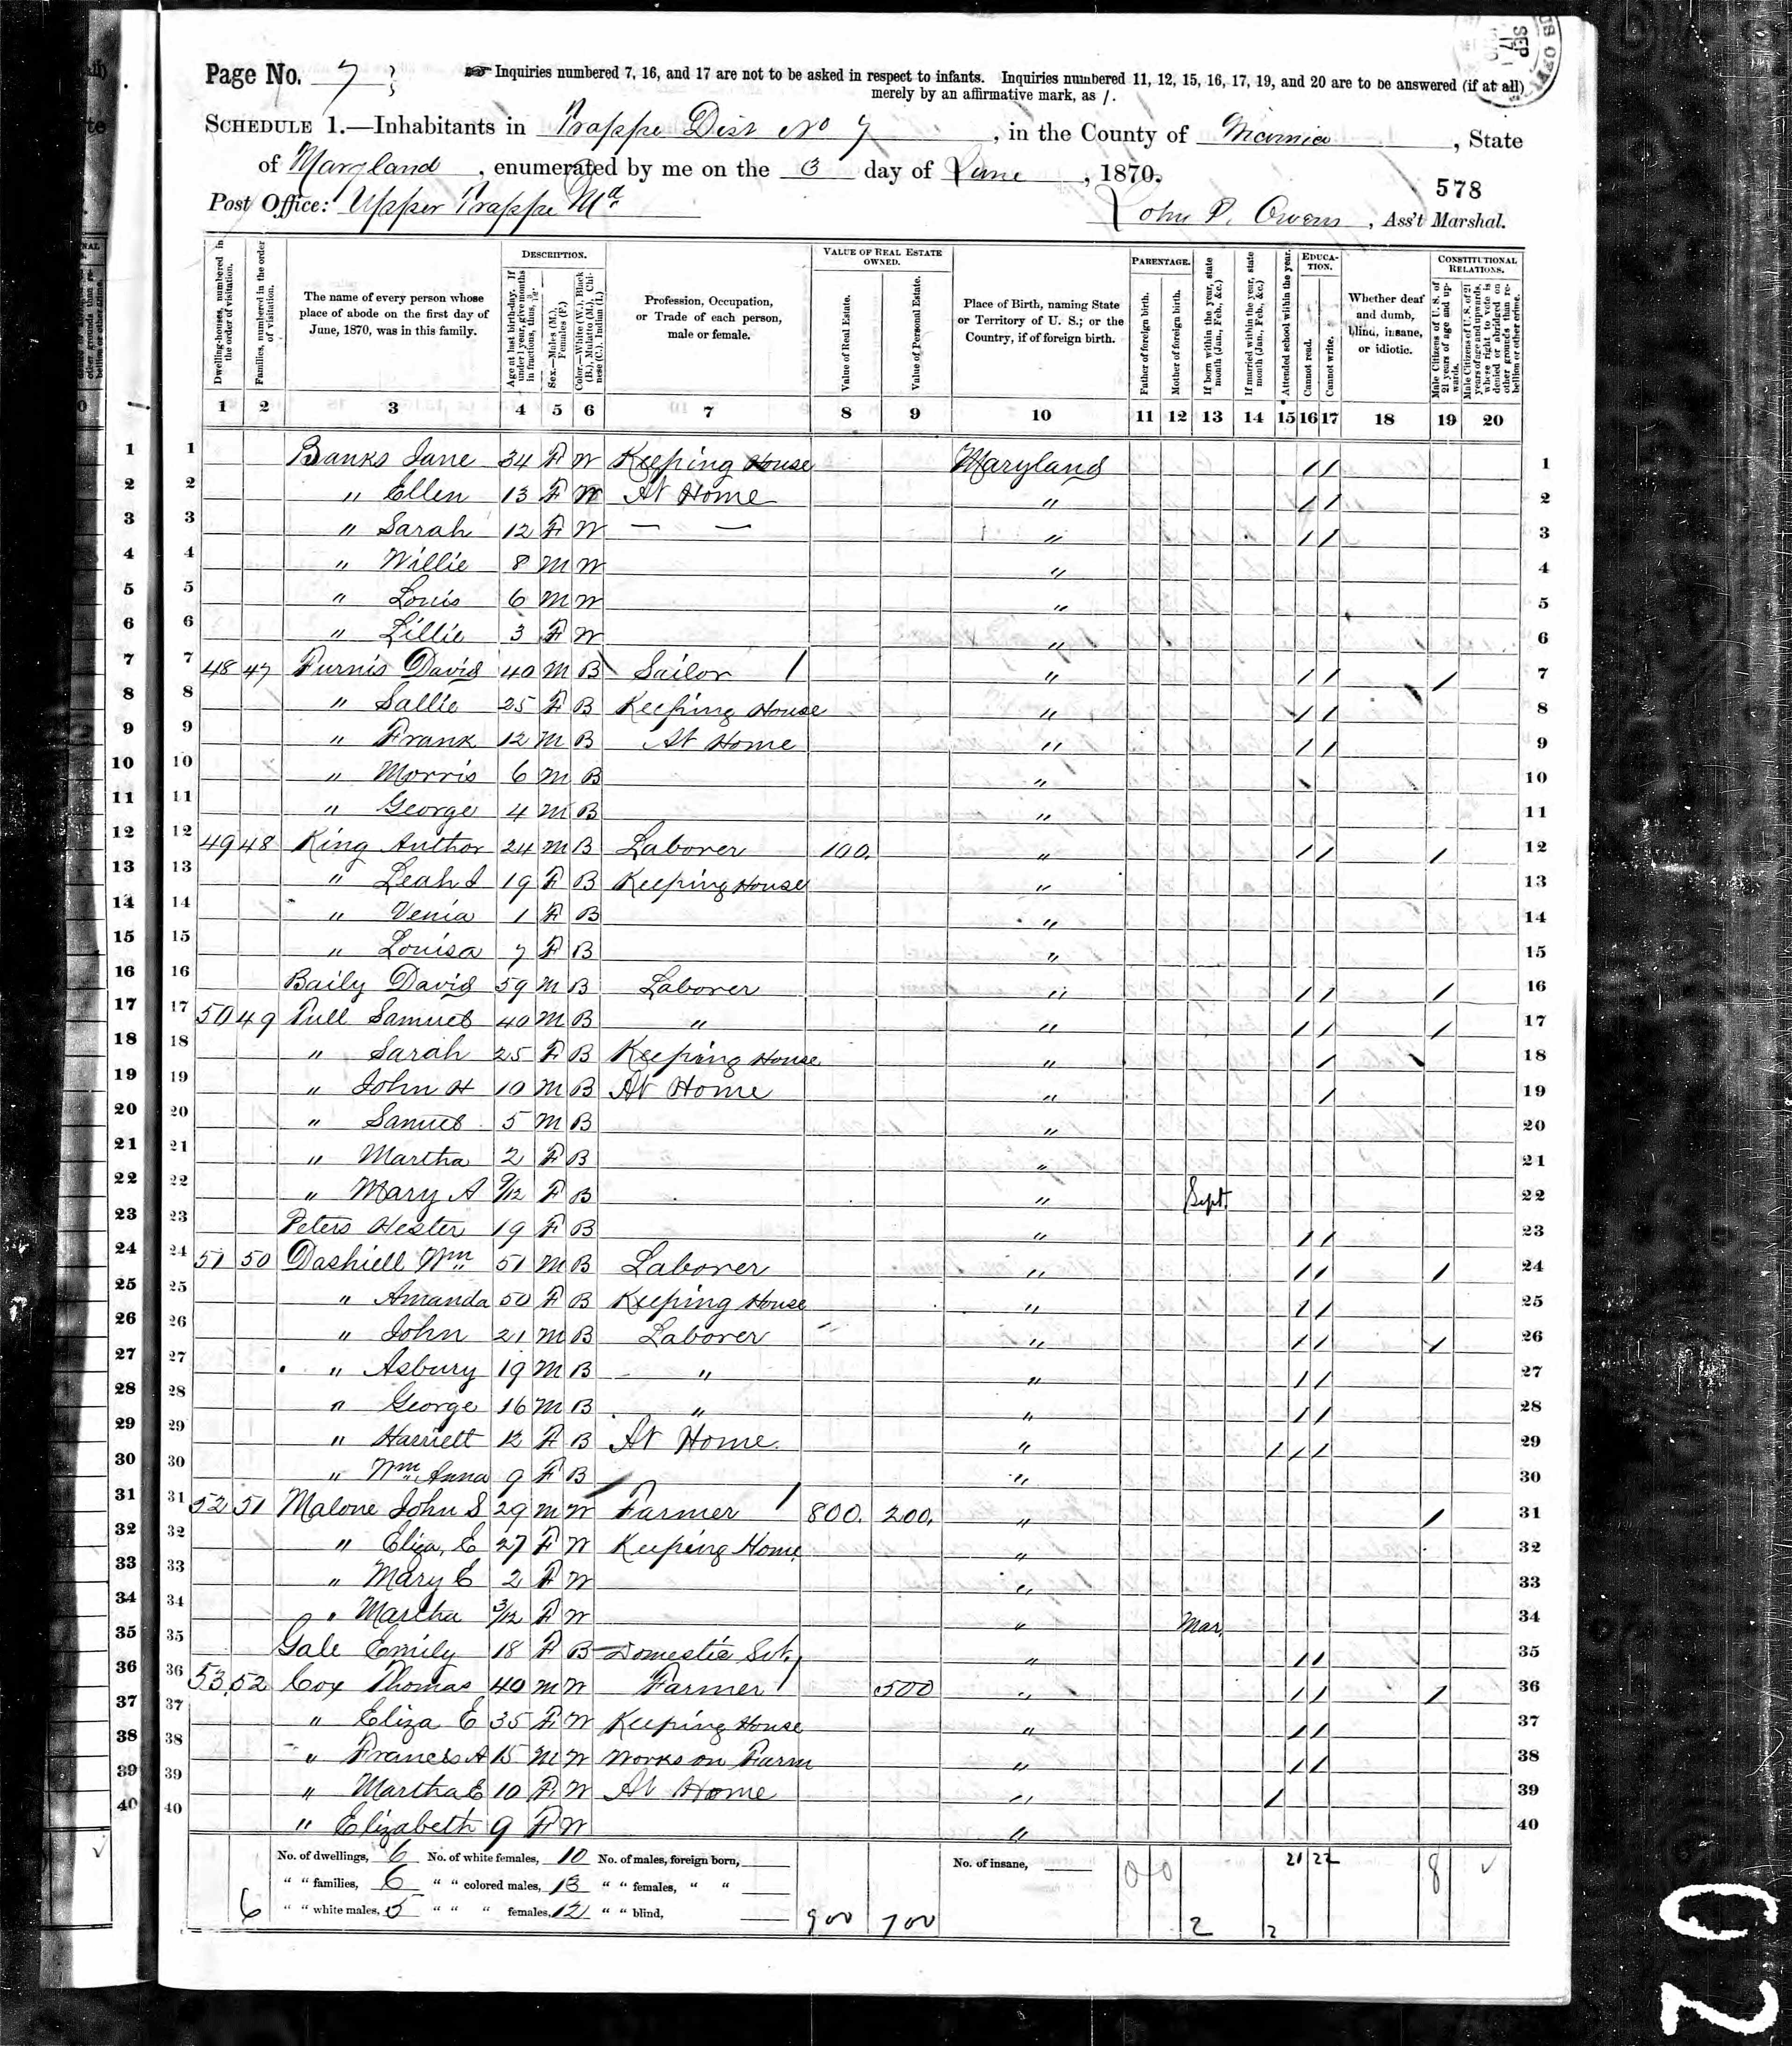 Page No. 7
Inquiries numbered 7, 16, and 17 are not to be asked in respect to infants. Inquiries numbered 11, 12, 15, 16, 17, 19, and 20 are to be answered (if at all)
merely by an affirmative mark, as /.
SCHEDULE 1.—Inhabitants in Trappe Dist No 7, in the County of, State
of Maryland, enumerated by me on the 3 day of June, 1870.
578
Post Office: Upper Trappe Md
John P. Owens, Ass't Marshal.
Dwelling-houses, numbered in the order of visitation.
Families, numbered in the order of visitation.
The name of every person whose place of abode on the first day of June, 1870, was in this family.
DESCRIPTION.
Age at last birth-day. If under 1 year, give months in fractions, thus, 3/12.
Sex.—Males (M.), Females (F.)
Color.—White (W.), Black (B.), Mulatto (M.), Chinese (C.), Indian (I.)
Profession, Occupation, or Trade of each person, male or female.
VALUE OF REAL ESTATE OWNED.
Value of Real Estate.
Value of Personal Estate.
Place of Birth, naming State or Territory of U. S.; or the Country, if of foreign birth.
PARENTAGE.
Father of foreign birth.
Mother of foreign birth.
If born within the year, state month (Jan., Feb., &c.)
If married within the year, state month (Jan., Feb., &c.)
Attended school within the year.
EDUCATION.
Cannot read.
Cannot write.
Whether deaf and dumb, blind, insane, or idiotic.
CONSTITUTIONAL RELATIONS.
Male Citizens of U. S. of 21 years of age and upwards.
Male Citizens of U. S. of 21 years of age and upwards, where right to vote is denied or abridged on other grounds than rebellion or other crime.
1 2 3 4 5 6 7 8 9 10 11 12 13 14 15 16 17 18 19 20
1 Banks Jane 34 F W Keeping House Maryland / / 1
2 " Ellen 13 F W At Home " / / 2
3 " Sarah 12 F W — — " / / 3
4 " Willie 8 M W " 4
5 " Louis 6 M W " 5
6 " Lillie 3 F W " 6
7 48 47 Furnis David 40 M B Sailor / " / / / 7
8 " Sallie 25 F B Keeping House " / / 8
9 " Frank 12 M B At Home " / / 9
10 " Morris 6 M B " 10
11 " George 4 M B " 11
12 49 48 King Author 24 M B Laborer 100. " / / / 12
13 " Leah J 19 F B Keeping House " 13
14 " Venia 1 F B " 14
15 " Louisa 7 F B " 15
16 Baily David 59 M B Laborer " / / / 16
17 50 49 Pull Samuel 40 M B " " / / / 17
18 " Sarah 25 F B Keeping House " / 18
19 " John H 10 M B At Home " / 19
20 " Samuel 5 M B " 20
21 " Martha 2 F B " 21
22 " Mary A 9/12 F B " Sept. 22
23 Peters Hester 19 F B " / / 23
24 51 50 Dashiell Wm 51 M B Laborer " / / / 24
25 " Amanda 50 F B Keeping House " / / 25
26 " John 21 M B Laborer " / / / 26
27 " Asbury 19 M B " " / / 27
28 " George 16 M B " " / / 28
29 " Harriett 12 F B At Home " / / / 29
30 " Wm Anna 9 F B " 30
31 52 51 Malone John S 29 M W Farmer / 800. 200. " / 31
32 " Eliza, E 27 F W Keeping Home " 32
33 " Mary E 2 F W " 33
34 " Martha 3/12 F W " Mar. 34
35 Gale Emily 18 F B Domestic Svt. " / / 35
36 53 52 Cox Thomas 40 M W Farmer / 500 " / / / 36
37 " Eliza E 35 F W Keeping House " / / 37
38 " Francis A 15 M W Works on Farm " / / 38
39 " Martha E 10 F W At Home " / 39
40 " Elizabeth 9 F W " 40
No. of dwellings, 6 No. of white females, 10 No. of males, foreign born, No. of insane, 0 0 21 22 8
" " families, 6 " " colored males, 13 " " females, " "
6 " " white males, 5 " " " females, 12 " " blind, 900 700 2 2
20